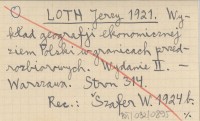 LOTH Jerzy 1921. Wy-
kład geografji ekonomicznej
ziem Polski w granicach przed-
rozbiorowych. Wydanie II. –
Warszawa. Stron 314.
Rec.: Szafer W. 1924b.